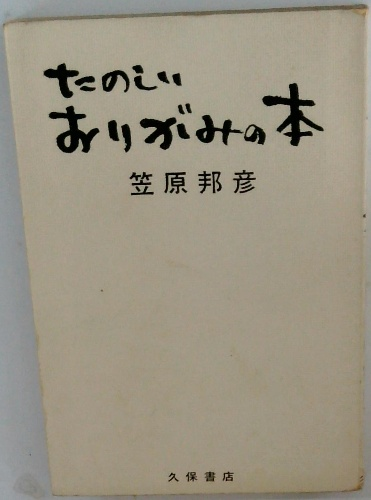 たのしい
おりがみの本
笠原邦彦
久保書店